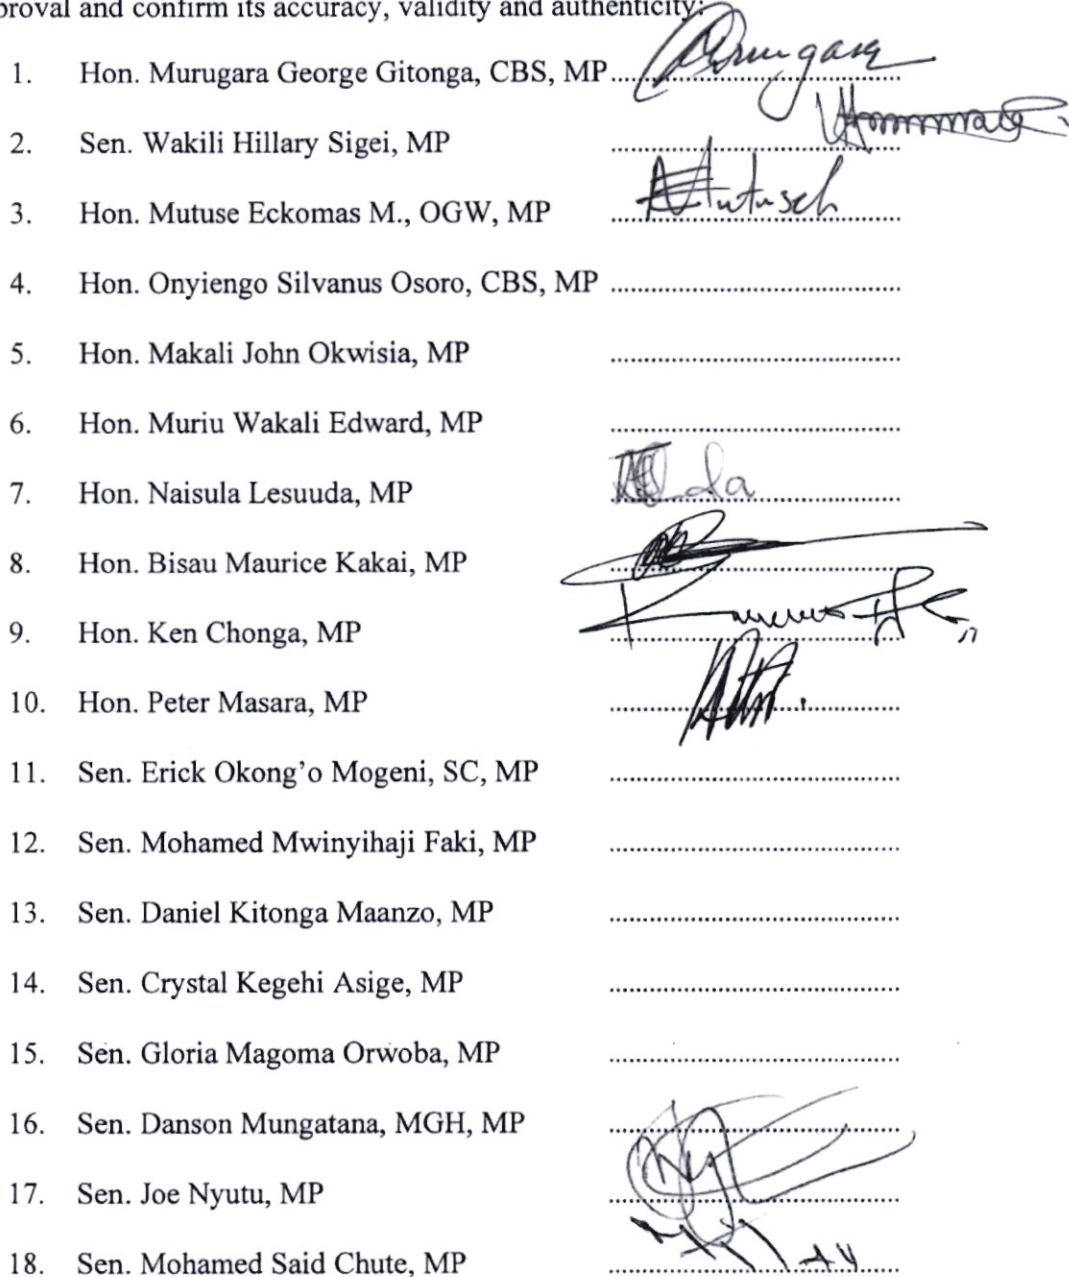 proval and confirm its accuracy, validity and authenticity:
1. Hon. Murugara George Gitonga, CBS, MP..........
2. Sen. Wakili Hillary Sigei, MP ..........
3. Hon. Mutuse Eckomas M., OGW, MP ..........
4. Hon. Onyiengo Silvanus Osoro, CBS, MP ..........
5. Hon. Makali John Okwisia, MP ..........
6. Hon. Muriu Wakali Edward, MP ..........
7. Hon. Naisula Lesuuda, MP ..........
8. Hon. Bisau Maurice Kakai, MP ..........
9. Hon. Ken Chonga, MP ..........
10. Hon. Peter Masara, MP ..........
11. Sen. Erick Okong'o Mogeni, SC, MP ..........
12. Sen. Mohamed Mwinyihaji Faki, MP ..........
13. Sen. Daniel Kitonga Maanzo, MP ..........
14. Sen. Crystal Kegehi Asige, MP ..........
15. Sen. Gloria Magoma Orwoba, MP ..........
16. Sen. Danson Mungatana, MGH, MP ..........
17. Sen. Joe Nyutu, MP ..........
18. Sen. Mohamed Said Chute, MP ..........